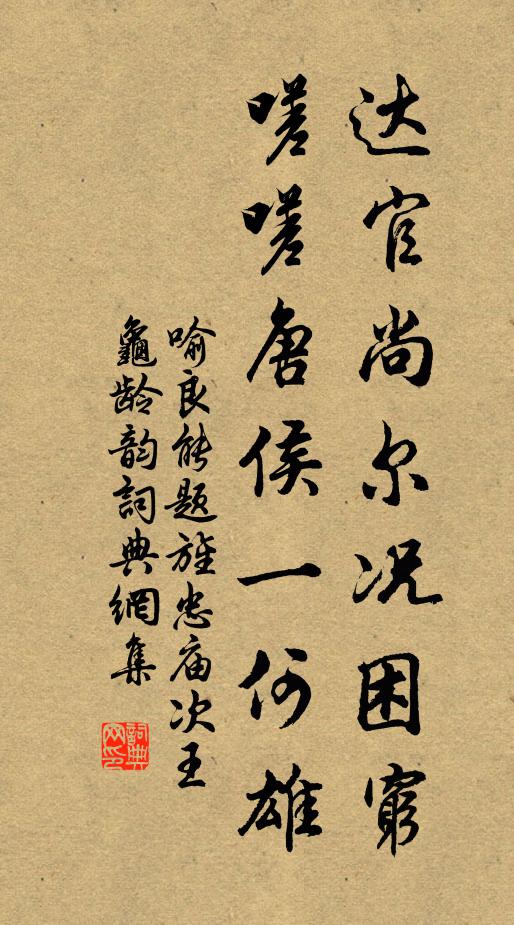 达官尚尔况困穷
嗟嗟唐侯一何雄
喻良能题旌忠庙次王
龜龄韵詞典網集
詞典
网印